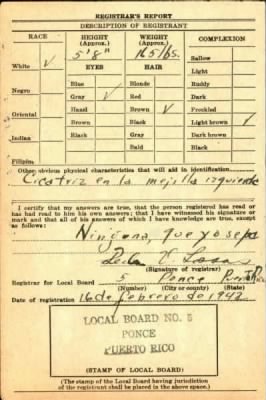 REGISTRAR'S REPORT
DESCRIPTION OF REGISTRANT
RACE HEIGHT (Approx.) WEIGHT (Approx.) COMPLEXION
5' 8" 165 lbs.
White ✓ EYES HAIR Sallow
Light
Blue Blonde Ruddy
Negro Gray ✓ Red Dark
Hazel Brown ✓ Freckled
Oriental Brown Black Light brown ✓
Black Gray Dark brown
Indian Bald Black
Filipino
Other obvious physical characteristics that will aid in identification
Cicatriz en la mejilla izquierda
I certify that my answers are true, that the person registered has read or
has had read to him his own answers; that I have witnessed his signature
or mark and that all of his answers of which I have knowledge are true, except
as follows:
Ninguna, que yo sepa
(Signature of registrar)
Registrar for Local Board 5 Ponce Puerto Rico
(Number) (City or county) (State)
Date of registration 16 de febrero de 1942
LOCAL BOARD NO. 5
PONCE
PUERTO RICO
(STAMP OF LOCAL BOARD)
(The stamp of the Local Board having jurisdiction
of the registrant shall be placed in the above space.)